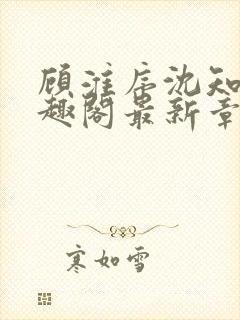 顾淮辰沈知
趣阁最新章
寒如雪